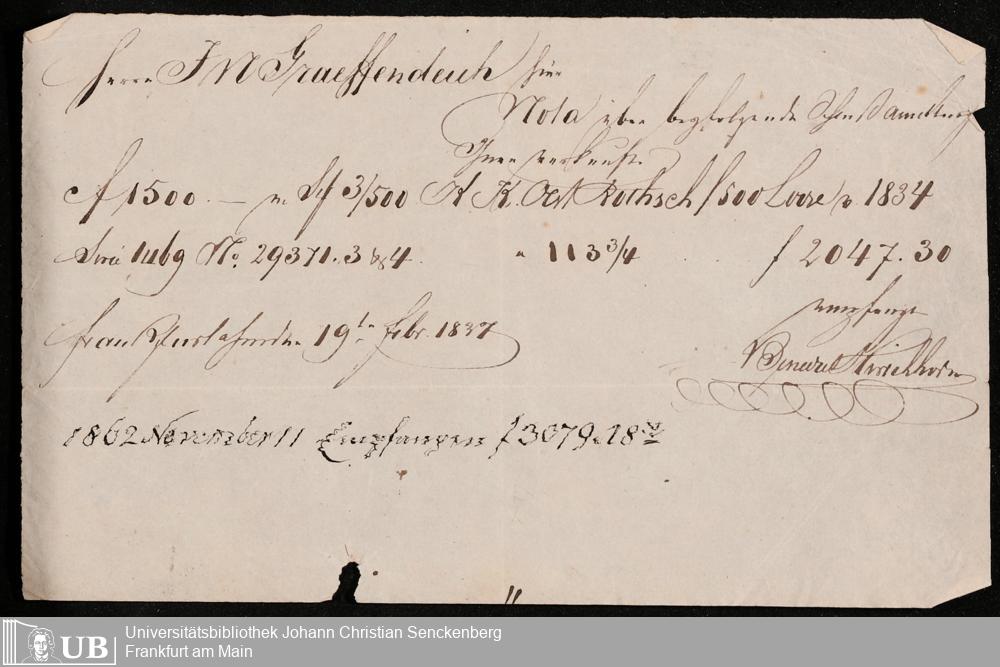 Herrn J N Graeffendeich hier
Nota über
Ihnen verkaufte
f 1500 — 3/500 K. K. Oest Rothsch f 500 Loose v. 1834
Serie 1469 No. 29371. 3 & 4. a 113 3/4 f 2047. 30
empfangen
Frankfurt a/m den 19t. Febr. 1837
Benedict Hirschhorn
1862 November 11 Empfangen f 3079. 18
UB
Universitätsbibliothek Johann Christian Senckenberg
Frankfurt am Main